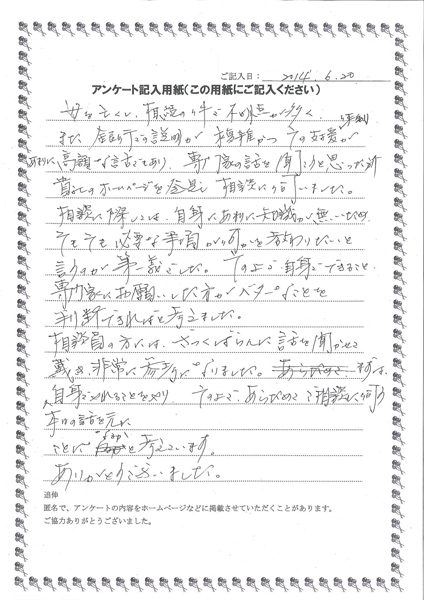 ご記入日： 2014. 6. 20
アンケート記入用紙（この用紙にご記入ください）
母を亡くし、相続の件で不明点が多く、
また、 説明が複雑かつ、その
あまりに高額な話でもあり、専門家の話を聞こうと思った
貴社のホームページを 相談に伺いました。
相談に際しては、自身にあまりに知識が無いため
そもそも必要な事項が何かを教わりたいと
言うのが第一義でした。その上で自身でできること、
専門家にお願いした方がベターなことを
判断できればと考えました。
相談員の方には、ざっくばらんに話を聞かせて
戴き、非常に参考になりました。 まずは、
自身でやれることをやり、その上で、あらためてご相談に伺う
本日の話を元に
ことに と考えています。
ありがとうございました。
追伸
匿名で、アンケートの内容をホームページなどに掲載させていただくことがあります。
ご協力ありがとうございました。